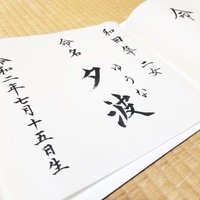 和田隼 二女
ゆうな
命名 夕波
令和二年七月十五日生
命